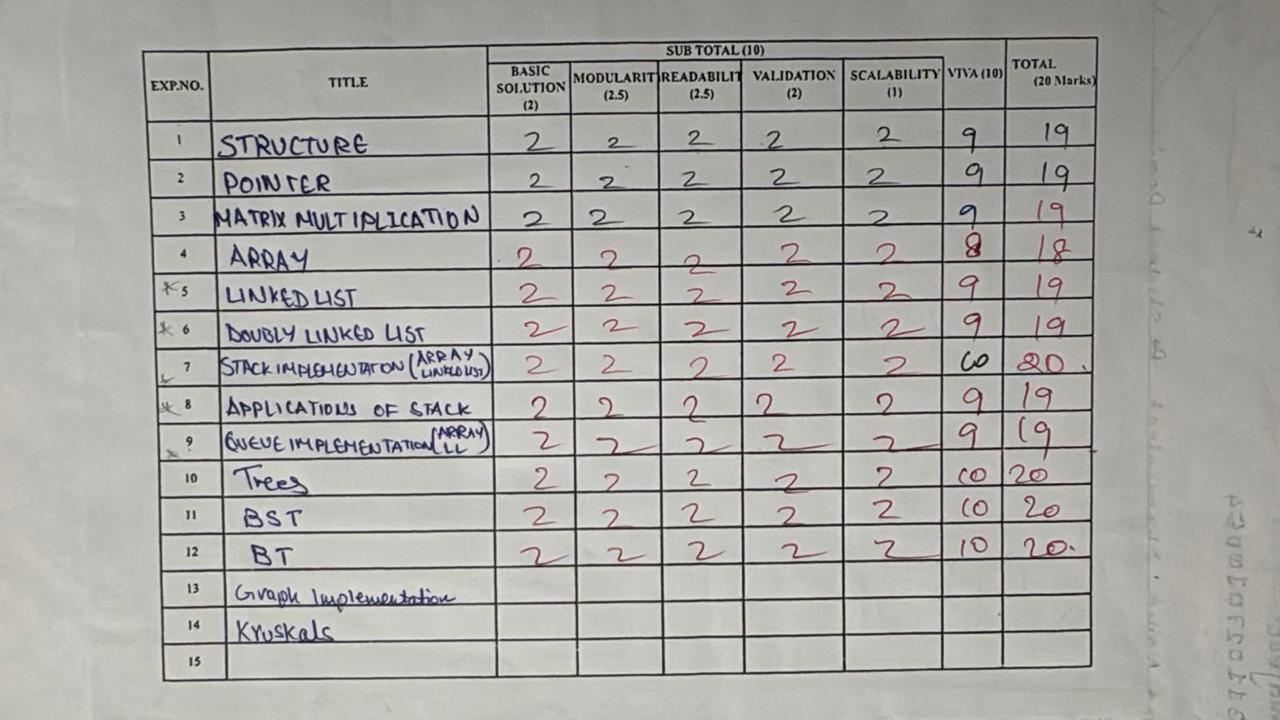 SUB TOTAL (10)
EXP.NO. TITLE BASIC SOLUTION (2) MODULARIT (2.5) READABILIT (2.5) VALIDATION (2) SCALABILITY (1) VIVA (10) TOTAL (20 Marks)
1 STRUCTURE 2 2 2 2 2 9 19
2 POINTER 2 2 2 2 2 9 19
3 MATRIX MULTIPLICATION 2 2 2 2 2 9 19
4 ARRAY 2 2 2 2 2 8 18
* 5 LINKED LIST 2 2 2 2 2 9 19
* 6 DOUBLY LINKED LIST 2 2 2 2 2 9 19
7 STACK IMPLEMENTATON (ARRAY LINKED LIST) 2 2 2 2 2 10 20.
* 8 APPLICATIONS OF STACK 2 2 2 2 2 9 19
9 QUEUE IMPLEMENTATION (ARRAY LL) 2 2 2 2 2 9 19
10 Trees 2 2 2 2 2 10 20
11 BST 2 2 2 2 2 10 20
12 BT 2 2 2 2 2 10 20.
13 Graph Implementation
14 Kruskals
15